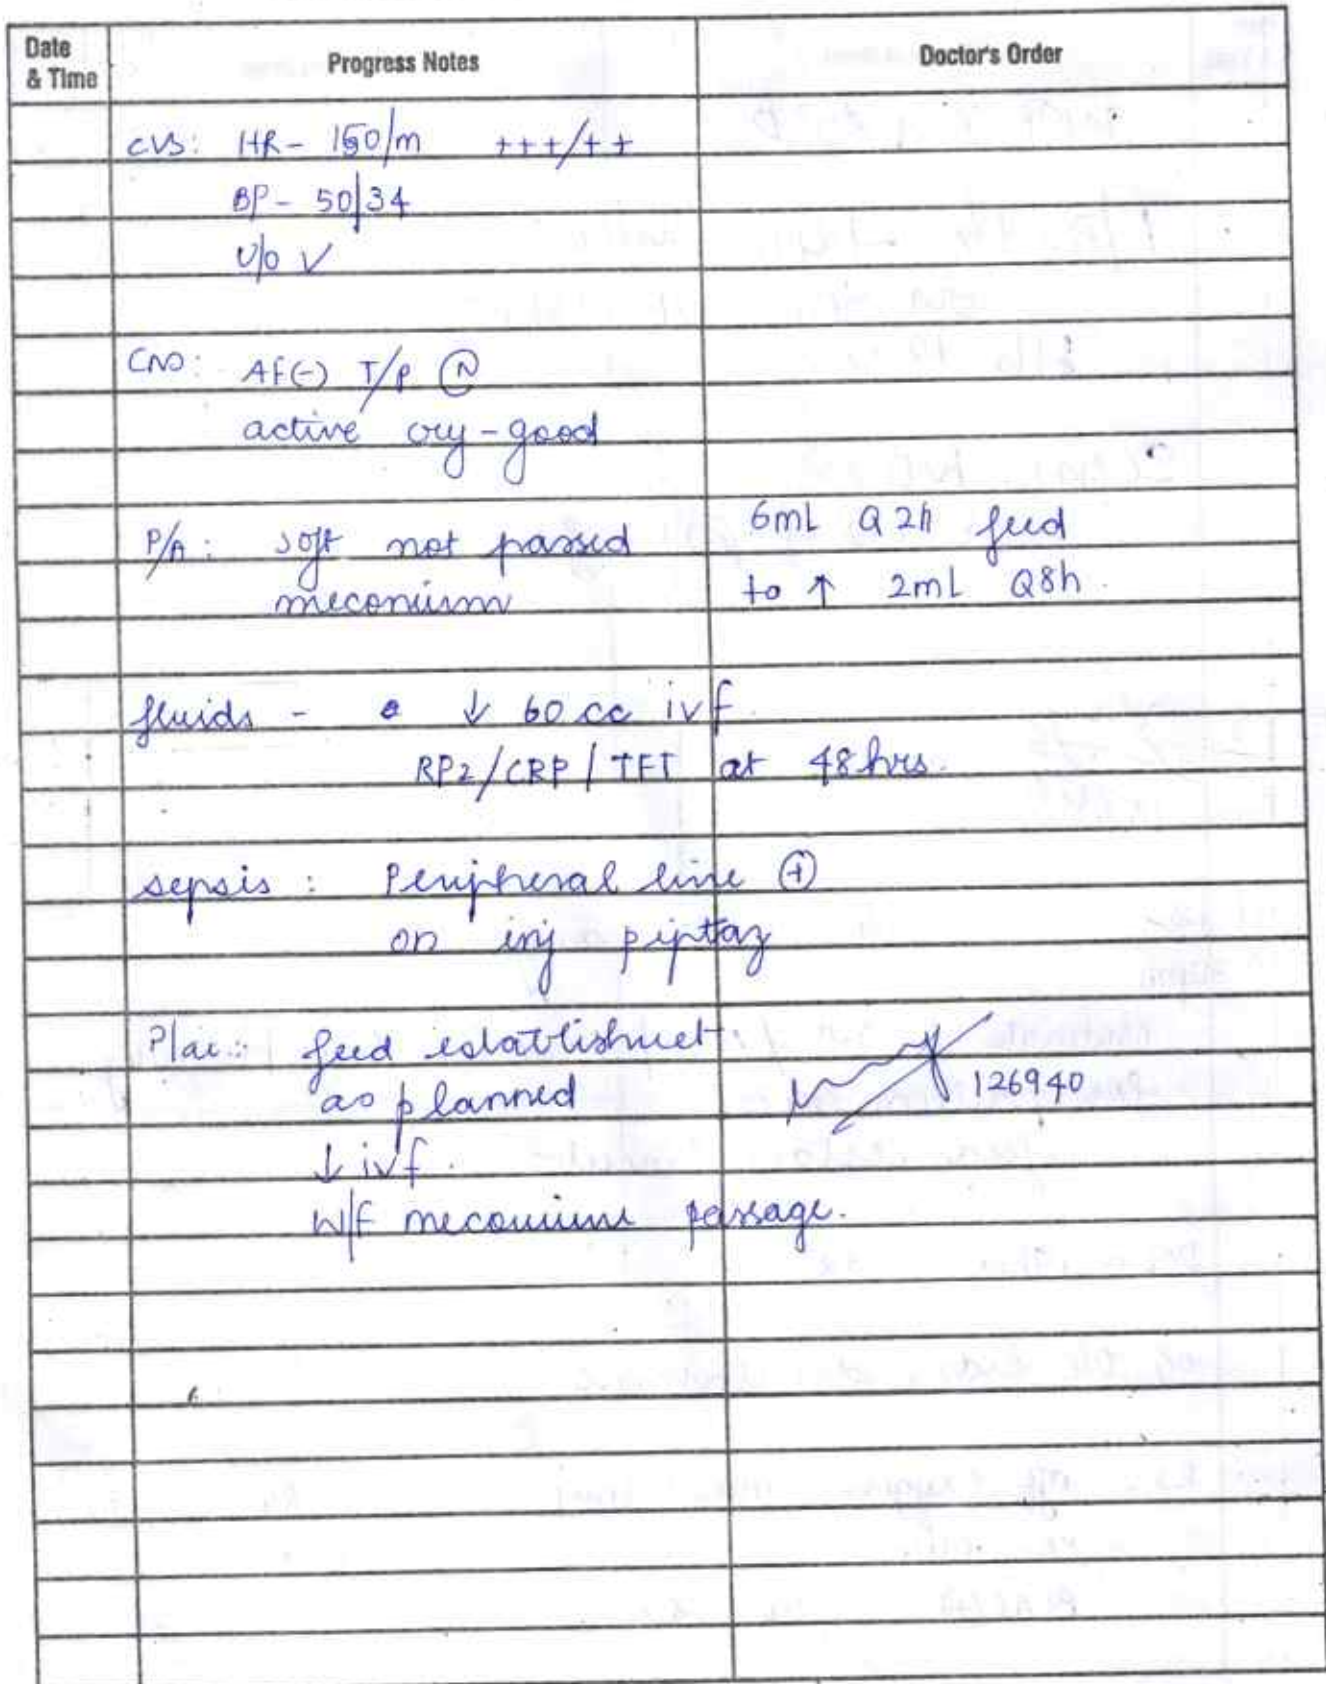 Date & Time Progress Notes Doctor's Order
CVS: HR- 150/m +++/++
BP- 50/34
U/O ✓
CNS: AF(-) T/P Ⓝ
active cry-good
P/A: soft not passed 6mL Q2h feed
meconium to ↑ 2mL Q8h.
fluids - ↓ 60 cc ivf.
RP2/CRP/TFT at 48hrs.
sepsis: Peripheral line ⊕
on inj piptaz
Plan: feed establishmet
as planned 126940
↓ ivf.
W/F meconium passage.